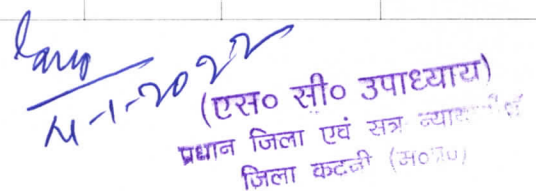 -1-2022
(एस० सी० उपाध्याय)
प्रधान जिला एवं सत्र
जिला कटनी (म०प्र०)